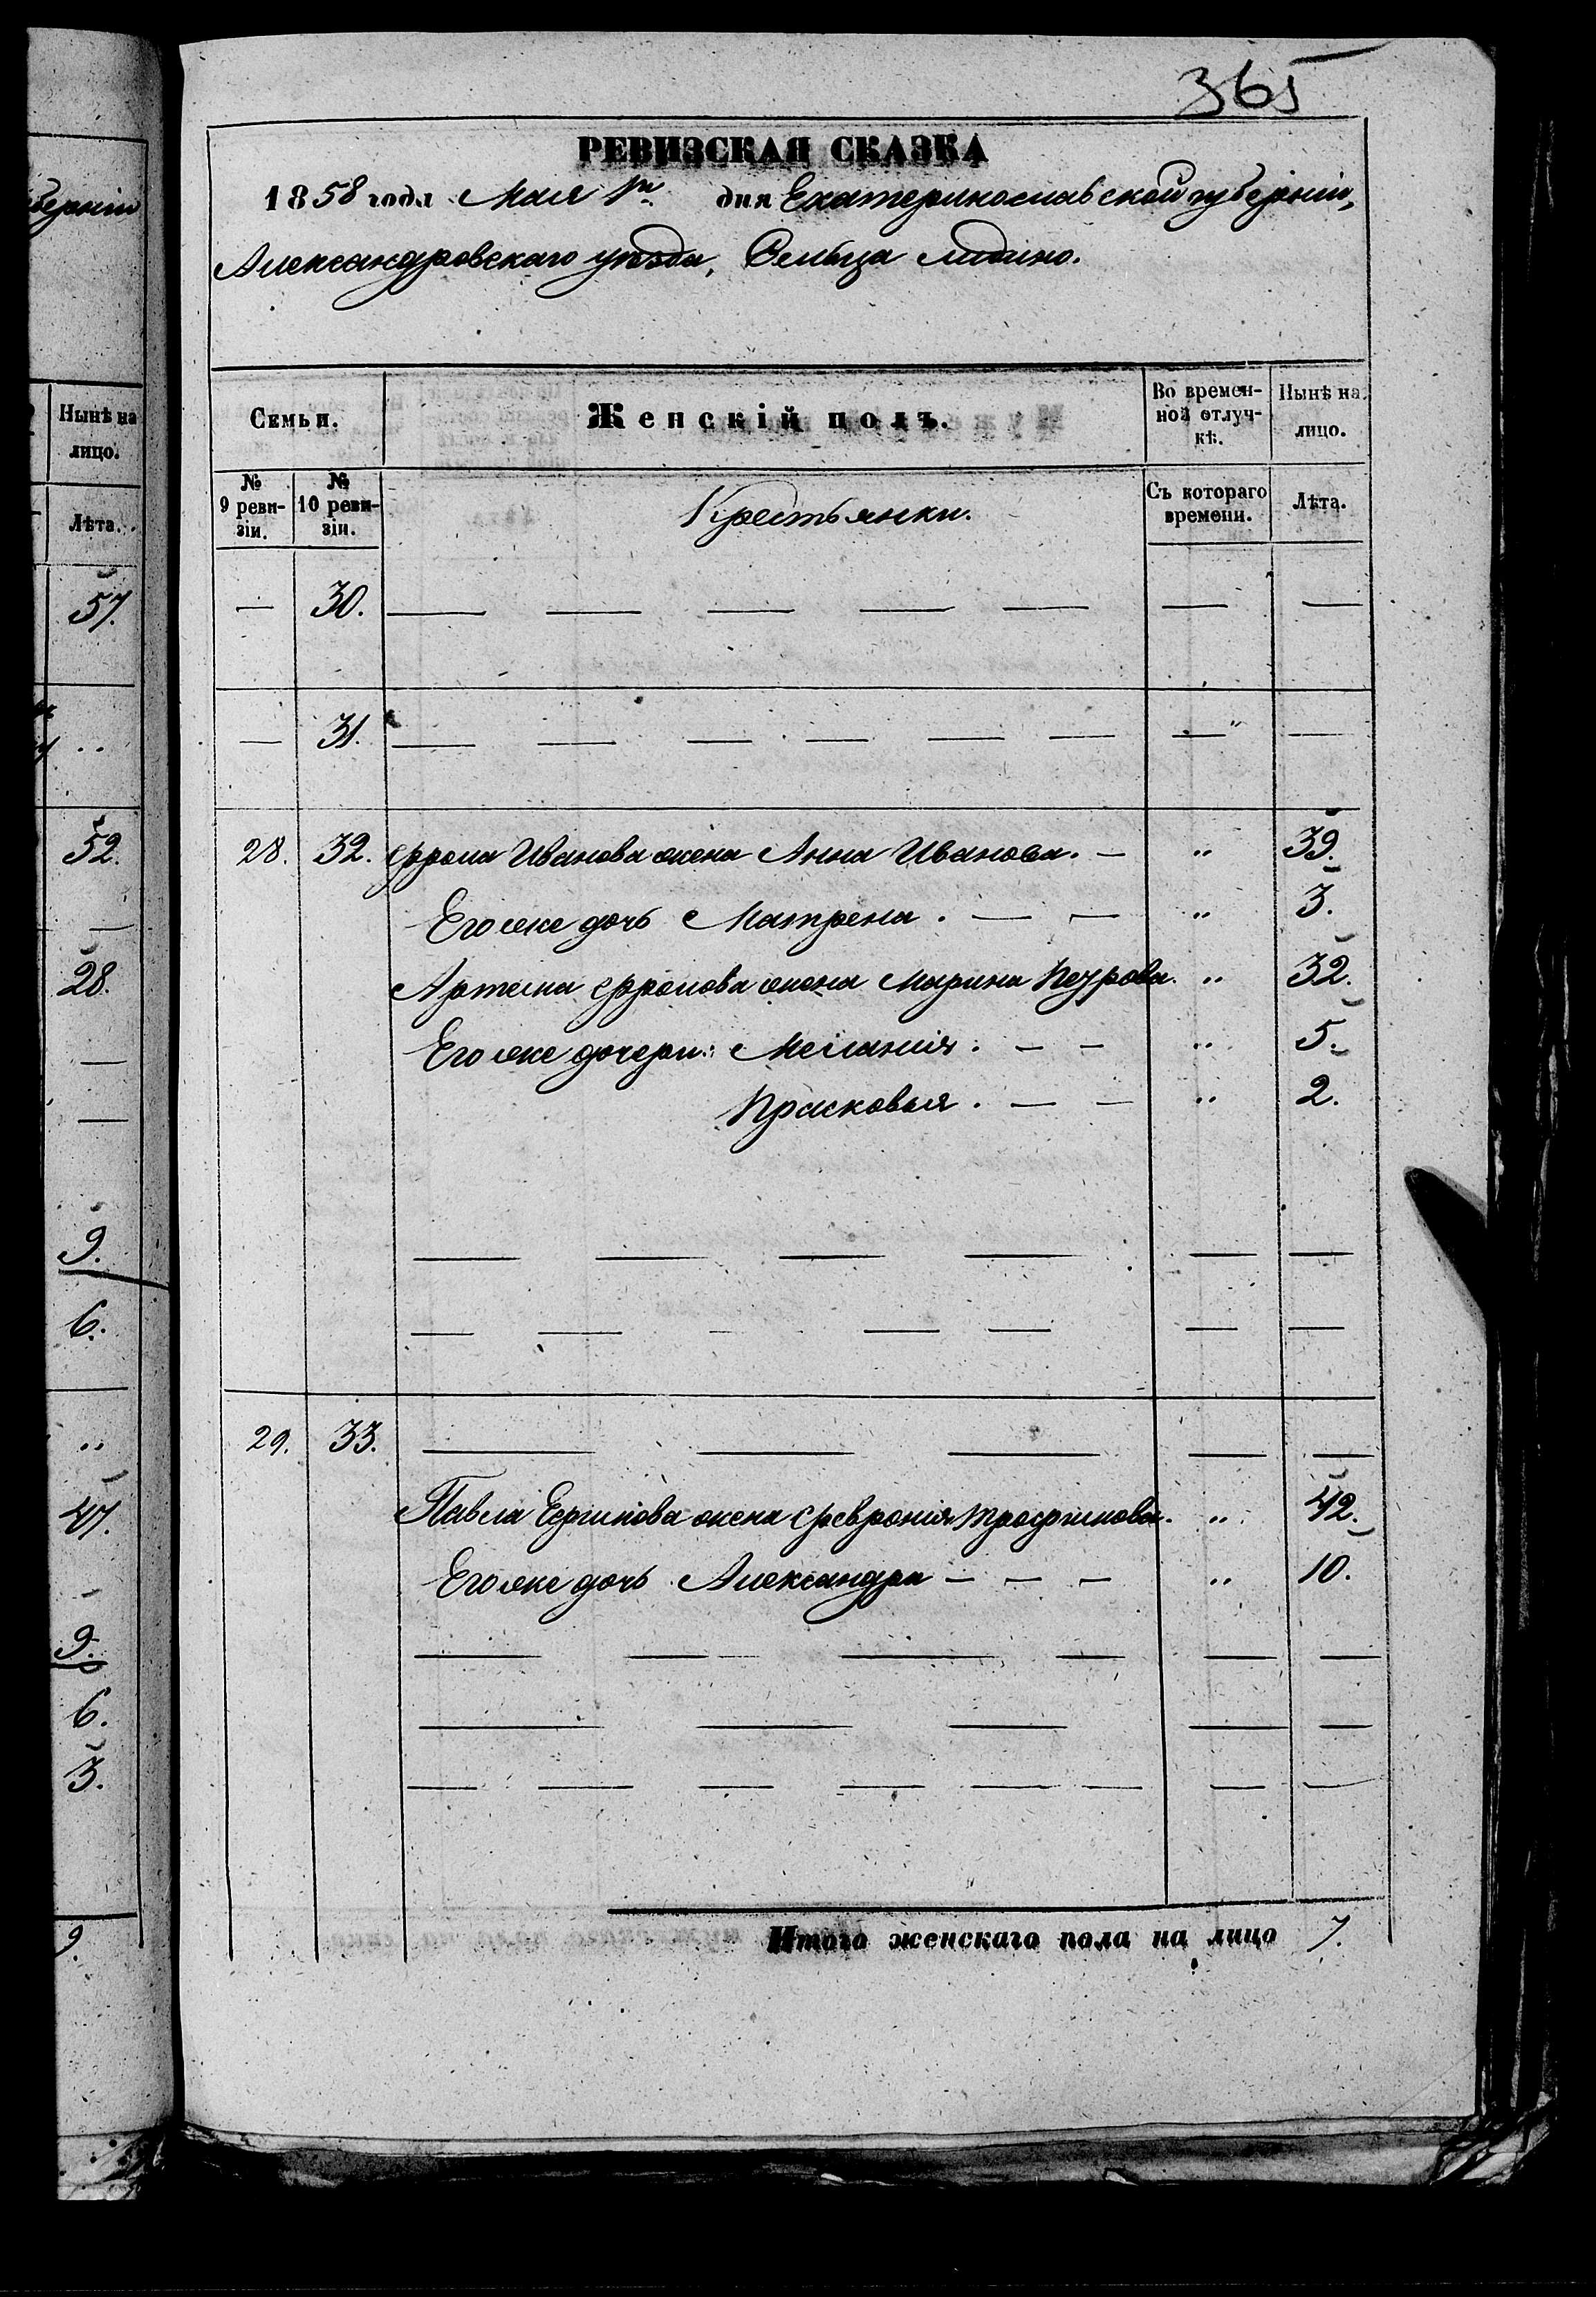 365
РЕВИЗСКАЯ СКАЗКА
1858 года Мая 1го дня Екатеринославской губерніи,
Александровскаго уѣзда, Сельца Лидино.
Семьи. Женскій полъ. Во времен- Нынѣ на
ной отлуч- лицо.
кѣ.
№ № Съ котораго Лѣта.
9 реви- 10 реви- времени.
зіи. зіи.
Крестьянки.
— 30. — — — — — — —
— 31. — — — — — — — —
28. 32. Фрола Иванова жена Анна Иванова. — " 39.
Его же дочь Матрена. — — " 3.
Артема Фролова жена Марина Петрова. " 32.
Его же дочери: Меланія. — — " 5.
Прасковья. — — " 2.
— — — — — —
— — — — — — —
29. 33. — — — — —
Павла Ефимова жена Февронія Трофимова. " 42.
Его же дочь Александра — — — " 10.
— — — — — —
— — — — —
— — — — — — — —
Итого женскаго пола на лицо 7.
берніи
Нынѣ на
лицо.
Лѣта.
57.
"
52.
—
28.
—
—
9.
6.
"
47.
9.
6.
3.
9.